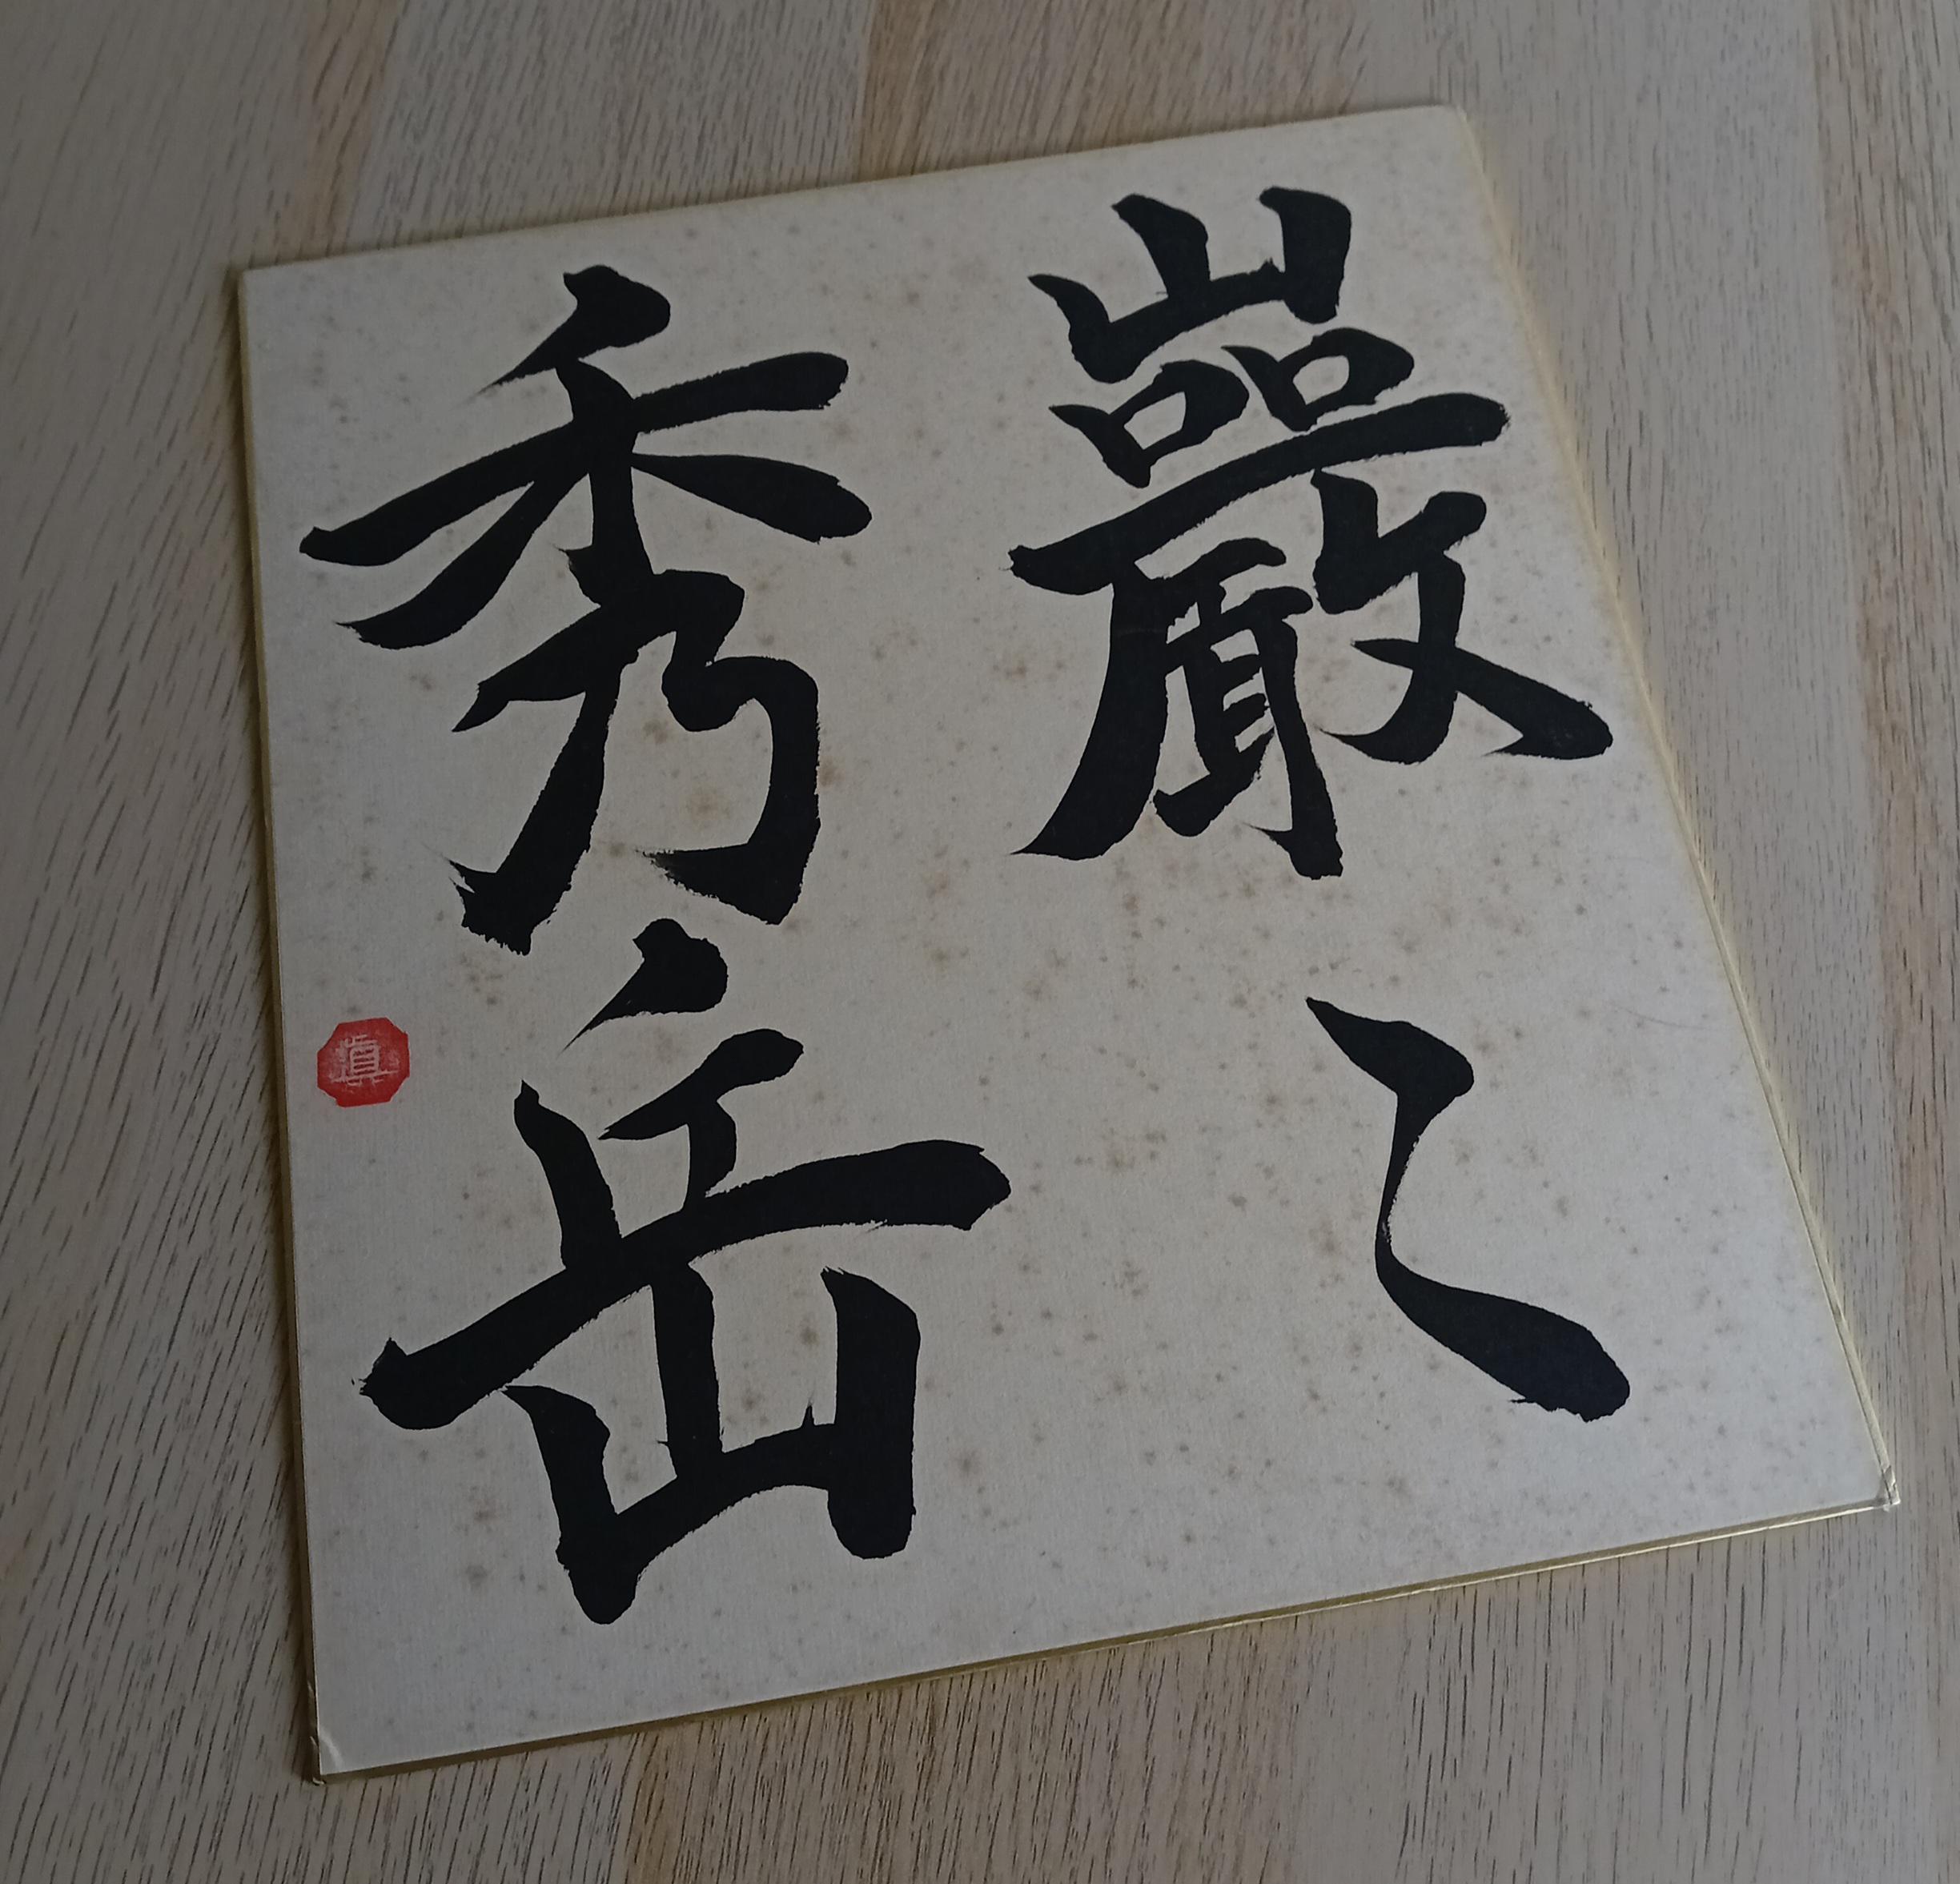 巖々
秀岳
眞